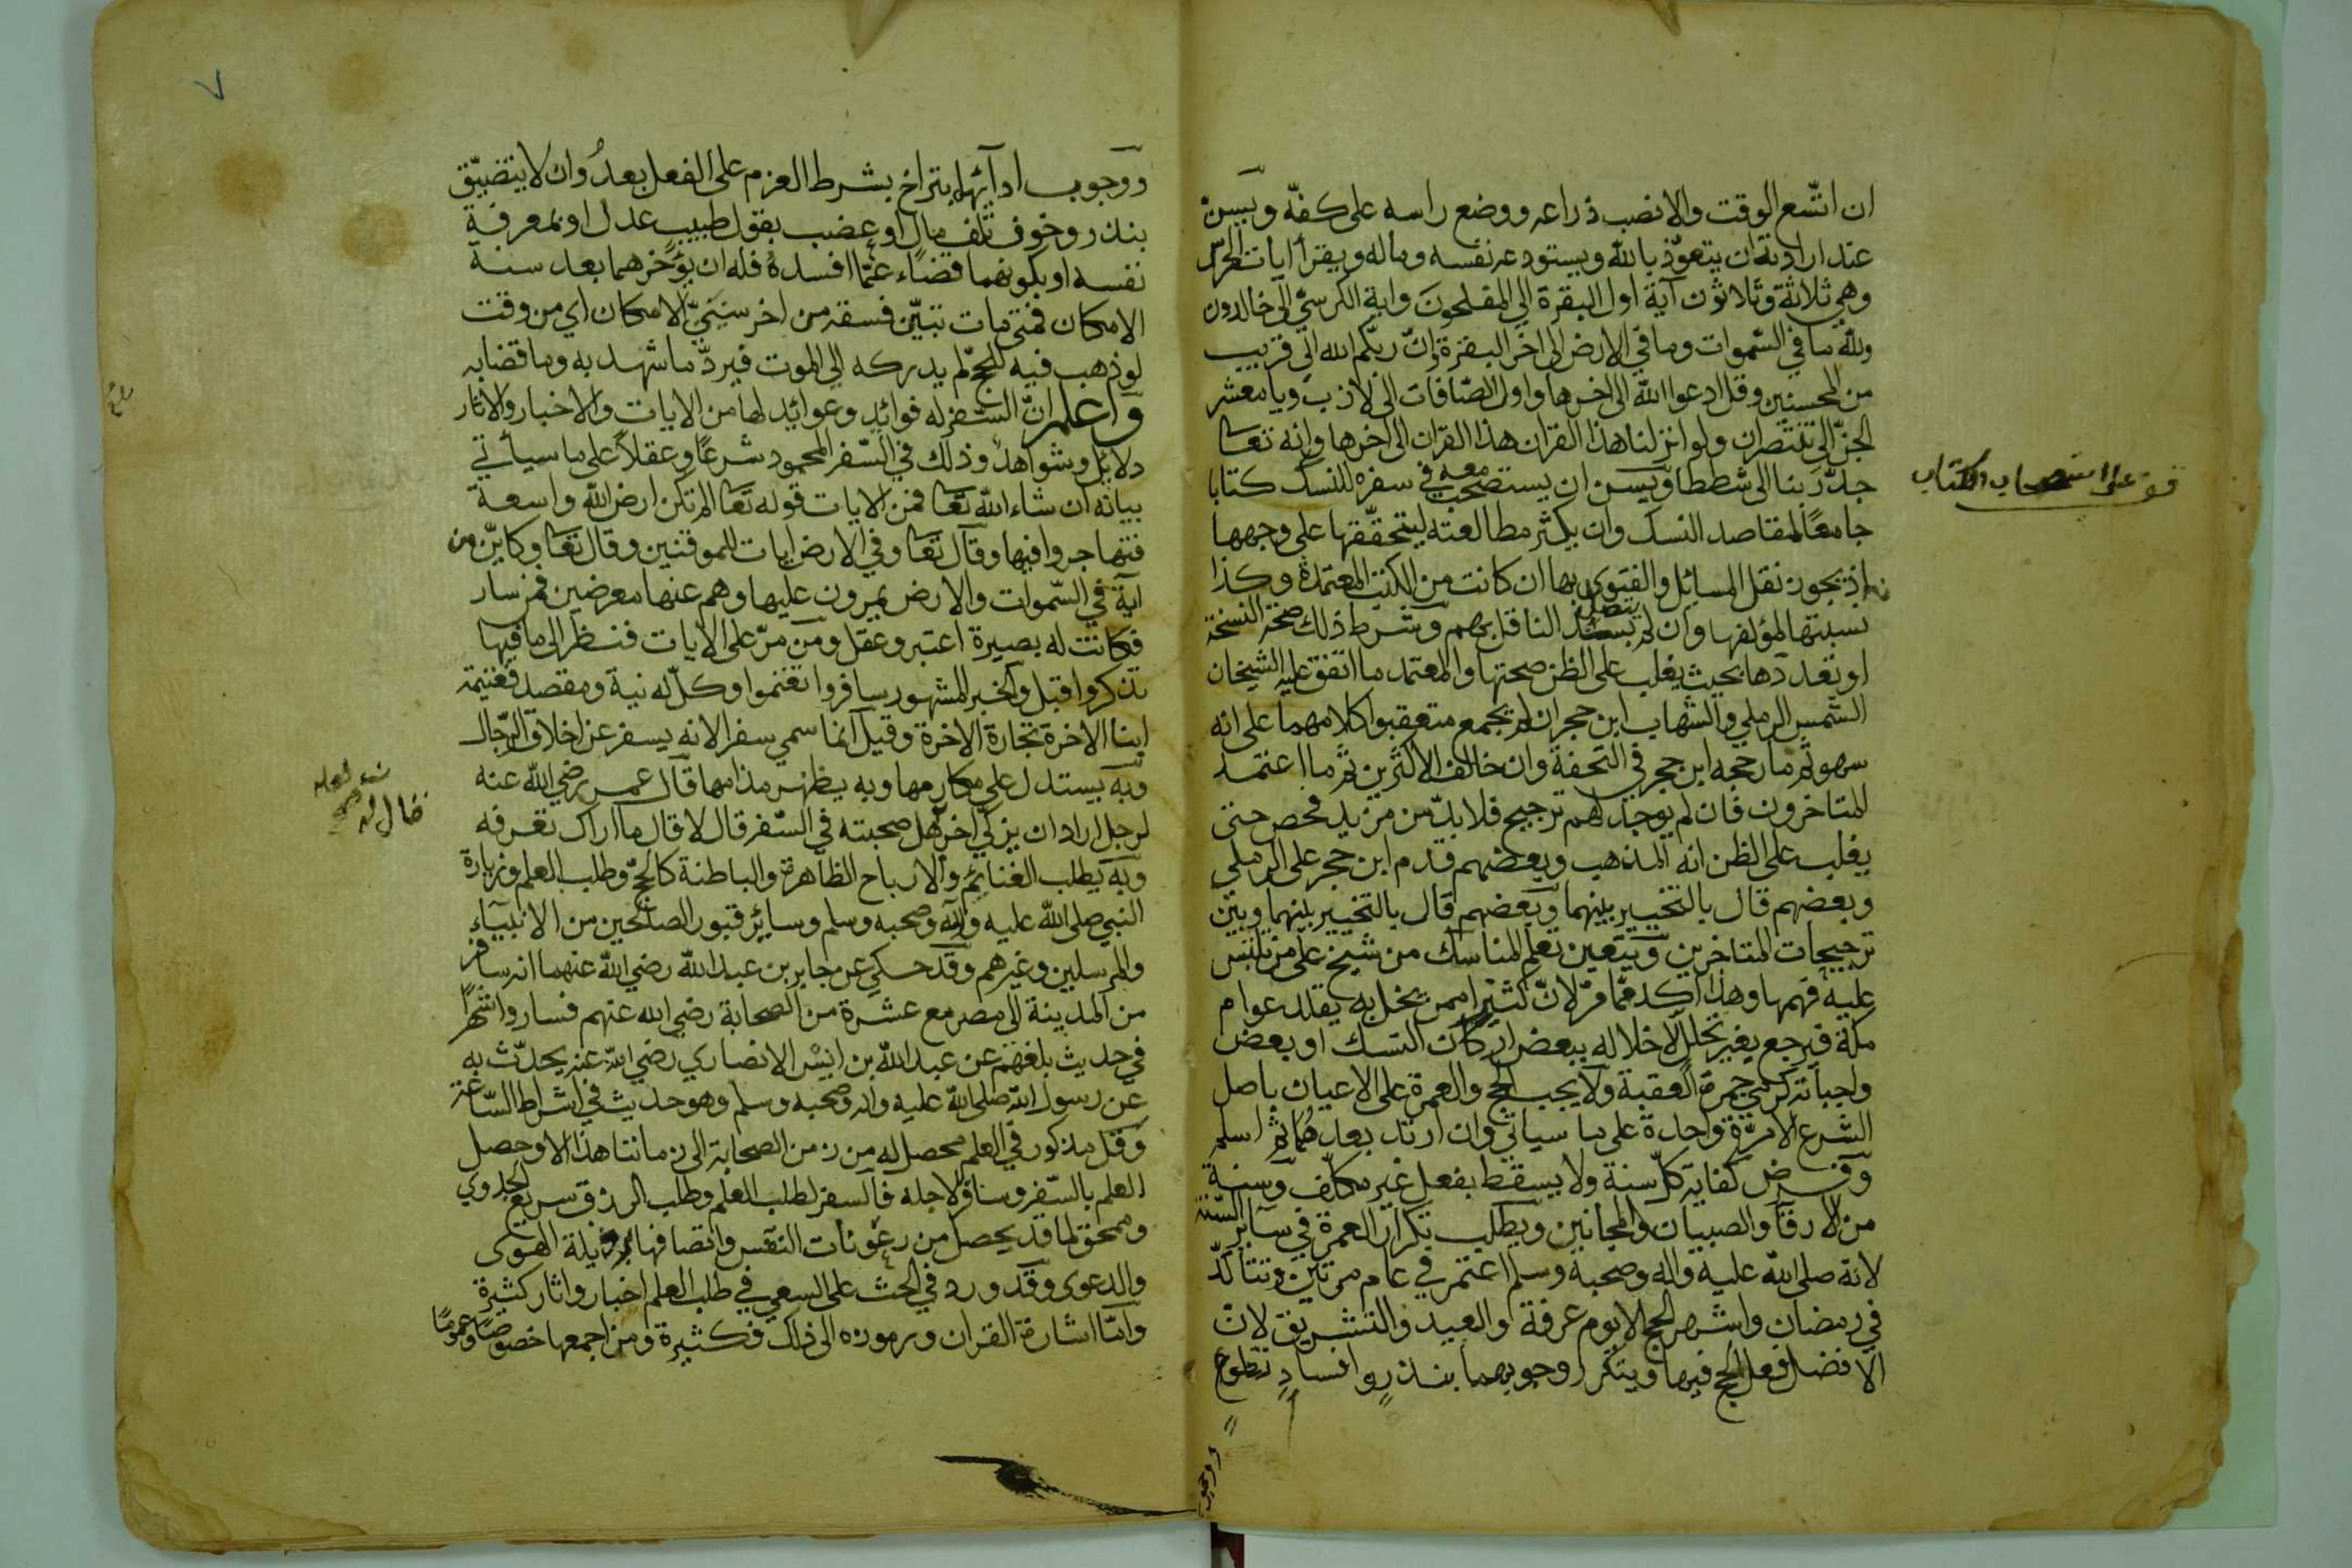 ان اتّسع الوقت والا نصب ذراعه ووضع راسه على كفّه ويسنّ
عند ارادته ان يتعوّذ بالله ويستودعه نفسه وماله ويقرأ ايات الحرس
وهي ثلاثة وثلاثون آية اول البقرة الى المفلحون واية الكرسيّ الى خالدون
ولله ما في السّموات وما في الارض الى اخر البقرة وانّ ربّكم الله الى قريب
من المحسنين وقل ادعوا الله الى اخرها واول الصّافات الى لازب ويا معشر
الجنّ الى تنتصران ولو انزلنا هذا القران هذا القران الى اخرها وانه تعا
جدّ ربنا الى شططا ويسن ان يستصحب معه في سفره للنسك كتابا
جامعًا لمقاصد النسك وان يكثر مطالعته ليتحقّقها على وجهها
اذ يجوز نقل المسائل والفتوى بها ان كانت من الكتب المعتمدة وكذا
نسبتها لمؤلفها وان لم يتصل سند الناقل بهم وشرط ذلك صحة النسخة
او تعددها بحيث يغلب على الظن صحتها والمعتمد ما اتفق عليه الشيخان
الشّمس الرملي والشهاب ابن حجر ان لم يجمع متعقبوا كلامهما على انه
سهو ثم ما رجحه ابن حجر في التحفة وان خالف الاكثرين ثم ما اعتمد
المتاخرون فان لم يوجد لهم ترجيح فلا بدّ من مزيد فحص حتى
يغلب على الظن انه المذهب وبعضهم قدم ابن حجر على الرملي
وبعضهم قال بالتخيير بينهما وبعضهم قال بالتخيير بينهما وبين
ترجيحات المتاخرين ويتعين تعلم المناسك من شيخ على من تلبّس
عليه فهمها وهذا آكد ممّا مرّ لانّ كثيرا ممن يخل به يقلد عوام
مكة فيرجع بغير تحلل لاخلاله ببعض اركان النسك او بعض
واجباته كرمي جمرة العقبة ولا يجب الحج والعمرة على الاعيان باصل
الشرع الا مرّة واحدة على ما سياتي وان ارتد بعدهما ثم اسلم
وفرض كفاية كلّ سنة ولا يسقط بفعل غير مكلّف وسنة
من الارقّاء والصبيان والمجانين ويطلب تكرار العمرة في سائر السنة
لانه صلى الله عليه واله وصحبه وسلم اعتمر في عام مرتين وتتأكّد
في رمضان واشهر الحج لا يوم عرفة او العيد والتشريق لانّ
الافضل فعل الحج فيها ويتكرر وجوبهما بنذر وافساد تطوع
ووجوب
قف على استصحاب الكتاب
٧
ووجوب ادآئها بتراخ بشرط العزم على الفعل بعدُ وان لا يتضيّق
بنذر وخوف تلف مال او عضب بقول طبيب عدل او بمعرفة
نفسه او بكونهما قضاء عمّا افسده فله ان يؤخرهما بعد سنة
الامكان فمتى مات تبيّن فسقه من اخر سنيّ الامكان اي من وقت
لو ذهب فيه للحج لم يدركه الى الموت فيردّ ما شهد به وما قضا به
واعلم انّ السّفر له فوائد وعوائد لها من الايات والاخبار والاثار
دلايل وشواهد وذلك في السّفر المحمود شرعًا وعقلاً على ما سيأتي
بيانه ان شاء الله تعا فمن الايات قوله تعا الم تكن ارض الله واسعة
فتهاجروا فيها وقال تعا وفي الارض ايات للموقنين وقال تعا وكايّن من
آية في السّموات والارض يمرون عليها وهم عنها معرضين فمن سار
فكانت له بصيرة اعتبر وعقل ومن مرّ على الايات فنظر الى ما فيها
تذكر واقبل والخبر المشهور سافروا تغنموا وكلّ له نية ومقصد فغنيمة
ابنا الاخرة تجارة الاخرة وقيل انما سمي سفرا لانه يسفر عن اخلاق الرّجال
وبه يستدل على مكارمها وبه يظهر مذامها قال عمر رضي الله عنه
لرجل اراد ان يزكّي اخر هل صحبته في السّفر قال لا قال ما اراك تعرفه
وبه يطلب الغنائم والارباح الظاهرة والباطنة كالحجّ وطلب العلم وزيارة
النبي صلى الله عليه وآله وصحبه وسلم وسائر قبور الصالحين من الانبياء
والمرسلين وغيرهم وقد حكي عن جابر بن عبد الله رضي الله عنهما انه سافر
من المدينة الى مصر مع عشرة من الصحابة رضي الله عنهم فساروا شهرًا
في حديث بلغهم عن عبد الله بن انيس الانصاري رضي الله عنه يحدّث به
عن رسول الله صلى الله عليه واله وصحبه وسلم وهو حديث في اشراط السّاعة
وقل مذكور في العلم محصل له من زمن الصحابة الى زماننا هذا الا وحصل
العلم بالسّفر وسافر لاجله فالسفر لطلب العلم وطلب الرزق سريع الجدوي
وممحق لما قد يحصل من رعونات النفس واتصافها برذيلة الهوى
والدعوى وقد ورد في الحث على السعي في طلب العلم اخبار واثار كثيرة
وامّا اشارة القران ورموزه الى ذلك فكثيرة ومن اجمعها خصوصًا وعمومًا